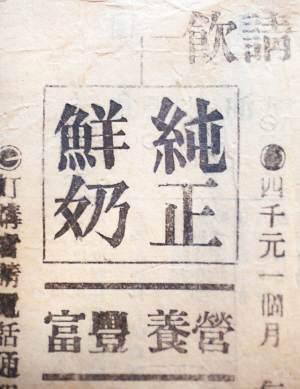 請飲
四千元一個月
純正
鮮奶
營養豐富
訂購電話通